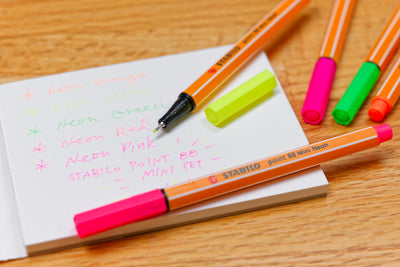 * Neon Orange
* Neon Green
* Neon Red
* Neon Pink
STABILO POINT 88
MINI SET
STABILO
STABILO point 88 Mini Neon